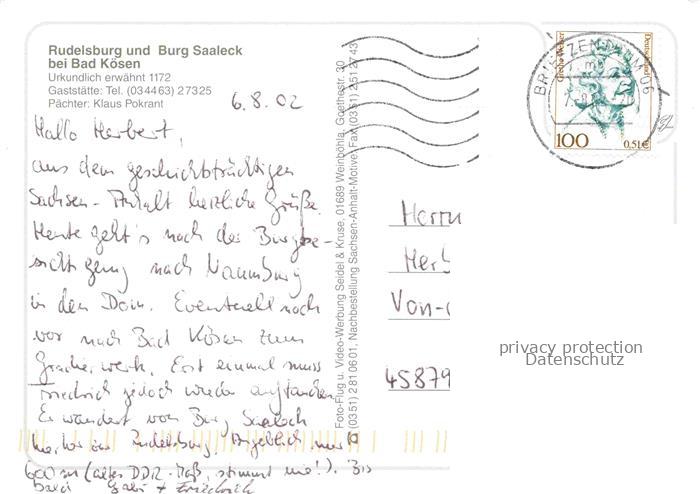 Rudelsburg und Burg Saaleck
bei Bad Kösen
Urkundlich erwähnt 1172
Gaststätte: Tel. (034463) 27325
Pächter: Klaus Pokrant
6.8.02
Hallo Herbert,
aus dem geschichtsträchtigen
Sachsen-Anhalt herzliche Grüße.
Heute geht's nach der Burgbe-
sichtigung nach Naumburg
in den Dom. Eventuell noch
vor nach Bad Kösen zum
Gradierwerk. Erst einmal muss
Friedrich jedoch wieder auftauchen.
Er wandert von Burg Saaleck
hierher zur Rudelsburg. Angeblich nur
600 m (altes DDR-Maß, stimmt nie!). Bis
bald Gabi + Friedrich
Foto-Flug u. Video-Werbung Seidel & Kruse, 01689 Weinböhla, Goethestr. 30
(0351) 2810601, Nachbestellung Sachsen-Anhalt-Motive: Fax (0351) 2512743
BRIEFZENTRUM 06
Grethe Weiser
Deutschland
100
0,51€
Herrn
Herb
Von-
45879
privacy protection
Datenschutz